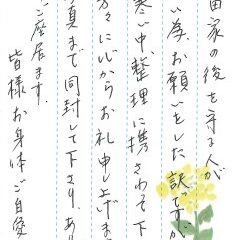 田家の後を守る人が
い為、お願いをした訳ですが
寒い中、整理に携さわそ下
方々に心からお礼申し上げま
写真まで同封して下さり、あり
ご座居ます。
皆様お身体ご自愛